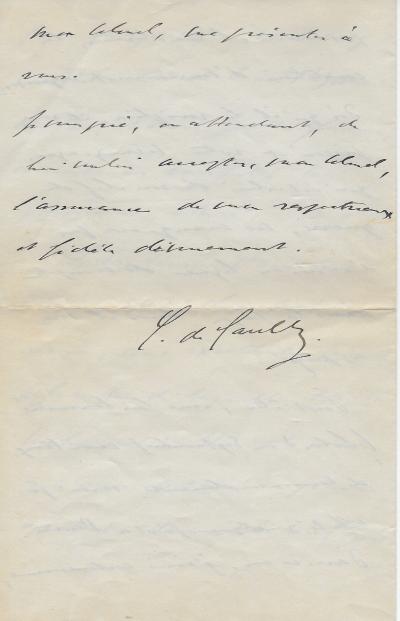 mon Colonel, me présenter à
vous.
en attendant, de
bien vouloir accepter, mon Colonel,
l'assurance de mon respectueux
et fidèle dévouement.
C. de Gaulle.